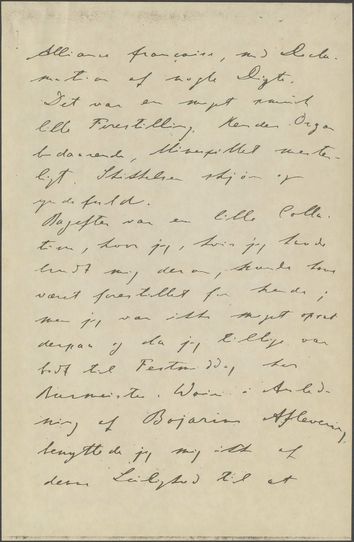 Alliance française, med Decla-
mation af nogle Digte.
Det var en meget smuk
lille Forestilling. Hendes Organ
bedaarende, Minespillet mester-
ligt. Skikkelsen skjøn og
yndefuld.
Bagefter var en lille Colla-
tion, hvor jeg, hvis jeg havde
budt mig deran, kunde have
været forestillet for hende;
men jeg var ikke meget oplagt
derpaa og da jeg tillige var
budt til Festmiddag hos
Burmeister & Wain i Anled-
ning af Bojarins Aflevering,
benyttede jeg mig ikke af
denne Leilighed til at